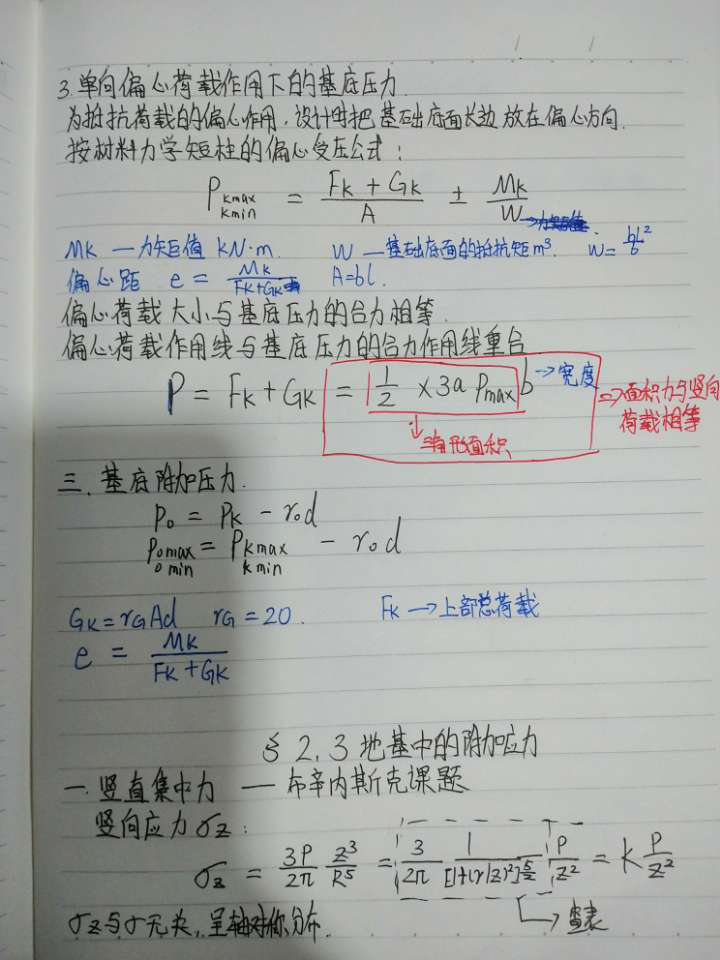 3.单向偏心荷载作用下的基底压力.
为抵抗荷载的偏心作用,设计时把基础底面长边放在偏心方向.
按材料力学短柱的偏心受压公式:
P kmax kmin = (Fk + Gk)/A ± Mk/W
Mk — 力矩值 kN·m. W — 基础底面的抵抗矩 m³. W = bl²/6
偏心距 e = Mk/(Fk+Gk) A=bl
偏心荷载大小与基底压力的合力相等.
偏心荷载作用线与基底压力的合力作用线重合
P = Fk + Gk = 1/2 × 3a Pmax b → 宽度
⇒ 面积力与竖向荷载相等
↓ 三角形面积
三.基底附加压力.
P0 = Pk - r0d
P0max 0min = Pkmax kmin - r0d
Gk = rGAd rG = 20. Fk → 上部总荷载
e = Mk/(Fk + Gk)
§2.3 地基中的附加应力
一.竖直集中力 — 布辛内斯克课题
竖向应力σz:
σz = 3P/2π z³/R⁵ = 3/2π 1/[1+(r/z)²]^5/2 P/z² = K P/z²
↳ 查表
σz与σ无关,呈轴对称分布.